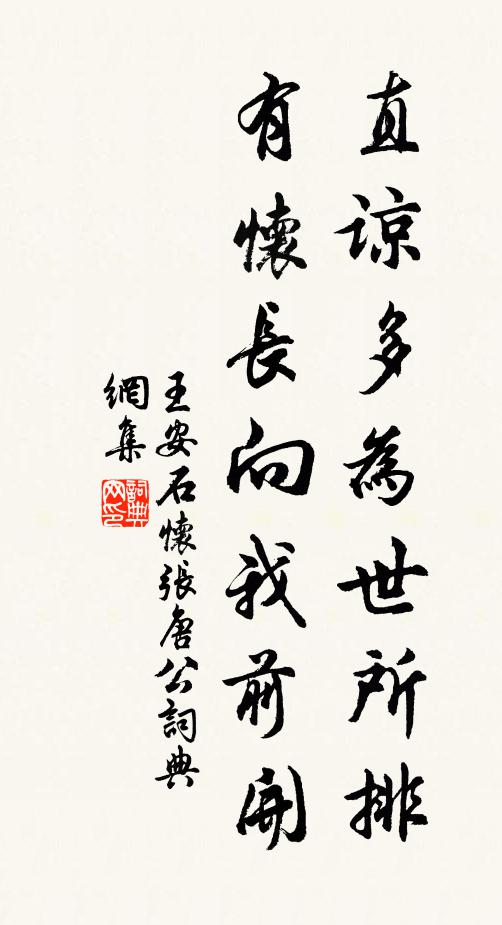 直諒多為世所排
有懷長向我前開
王安石懷張唐公詞典
網集
詞典網印